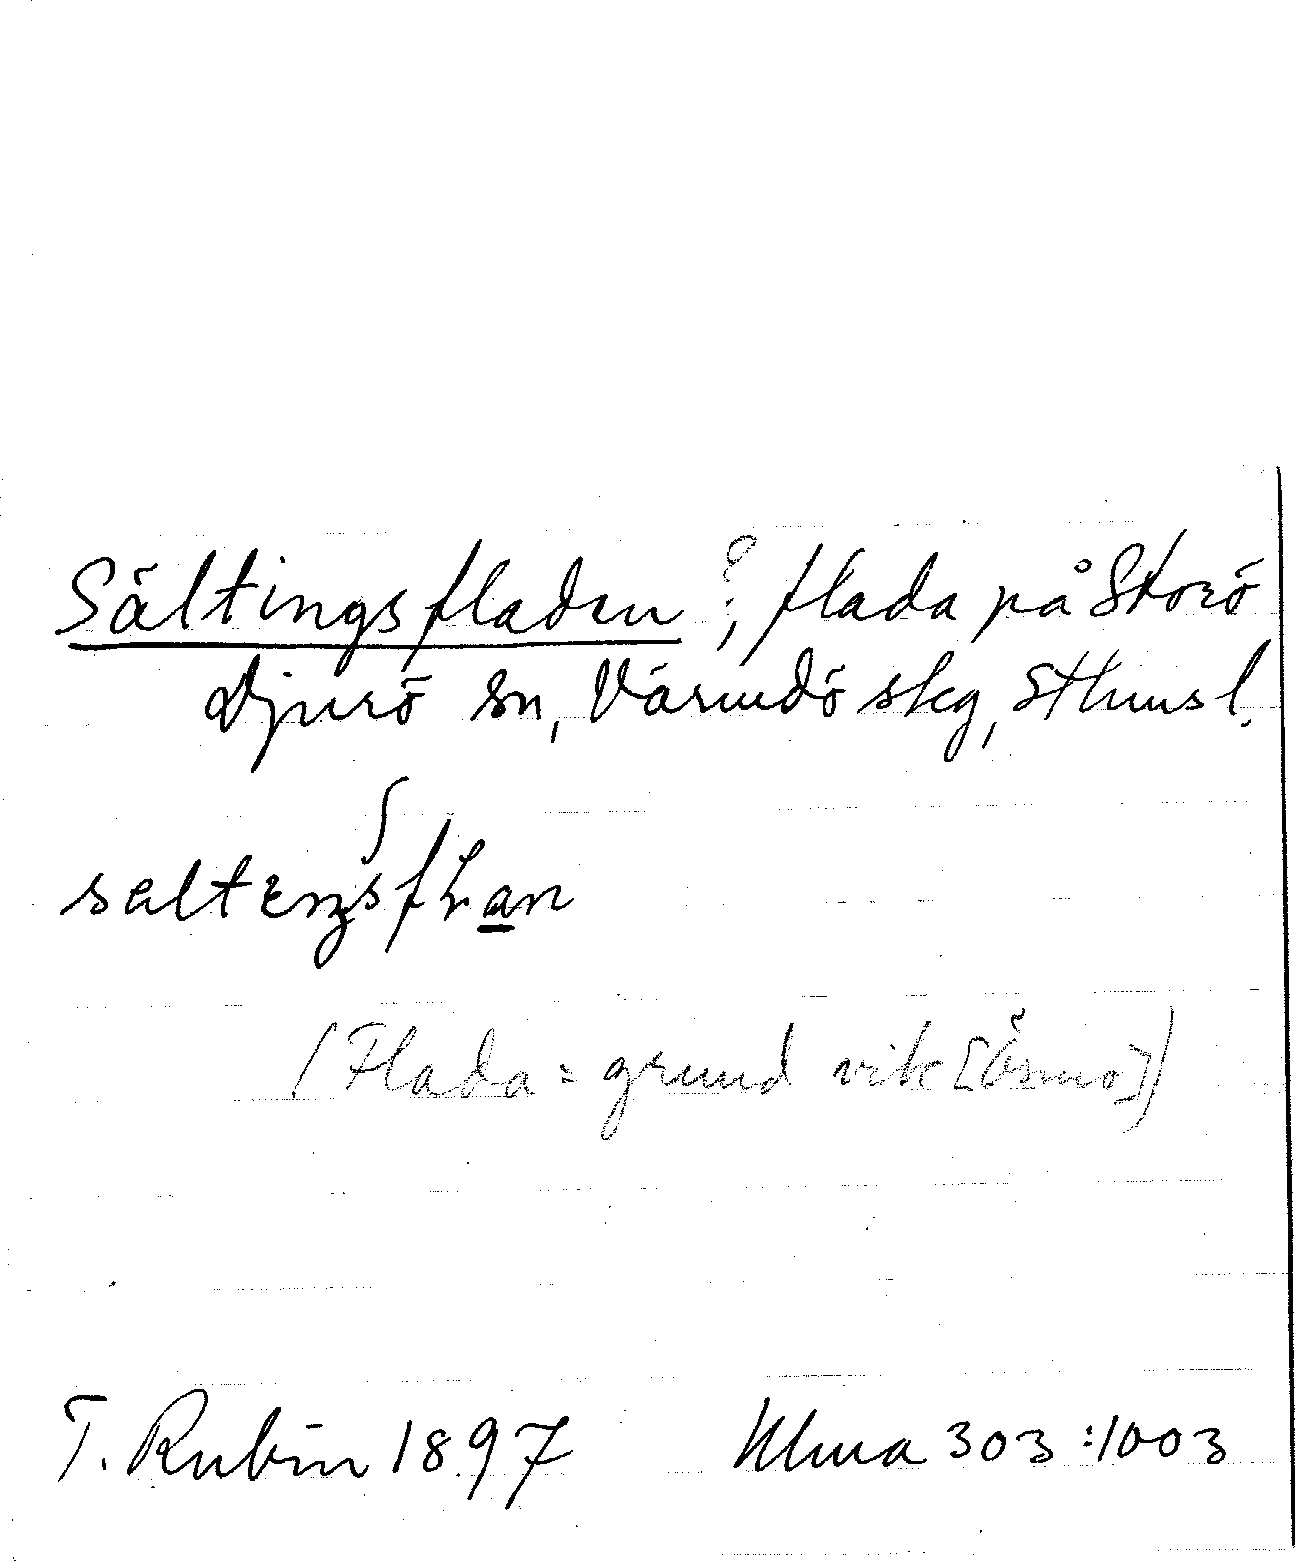 Sältingsfladen ?, flada på Storö
Djurö sn, Värmdö skg, Sthms l.
(Flada = grund vik [Ösmo])
T. Rubin 1897 Ulma 303:1003